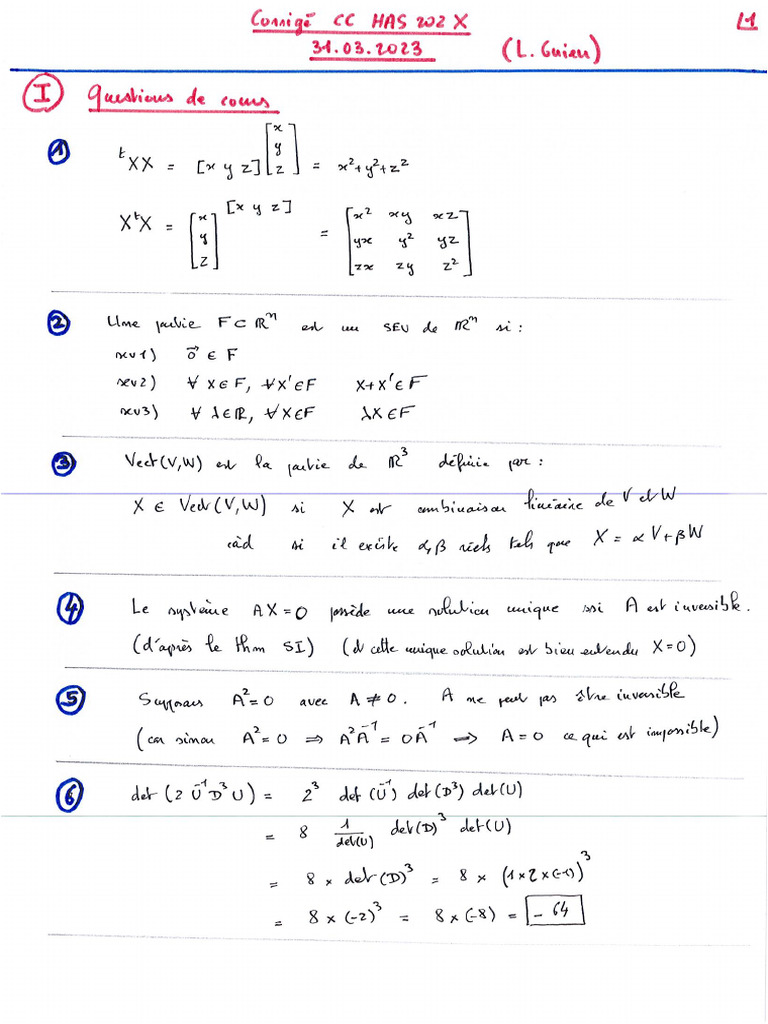 Corrigé CC HAS 202 X
1
31.03.2023 (L. Guieu)
I Questions de cours
1 ᵗXX = [x y z] [x y z] = x²+y²+z²
XᵗX = [x y z] [x y z] = [x² xy xz
yx y² yz
zx zy z²]
2 Une partie F⊂ℝⁿ est un SEV de ℝⁿ si :
sev1) 0⃗ ∈ F
sev2) ∀ X∈F, ∀X'∈F X+X'∈F
sev3) ∀ λ∈ℝ, ∀X∈F λX∈F
3 Vect(V,W) est la partie de ℝ³ définie par :
X ∈ Vect(V,W) si X est combinaison linéaire de V et W
càd si il existe α,β réels tels que X = αV+βW
4 Le système AX=0 possède une solution unique ssi A est inversible.
(d'après le thm SI) (et cette unique solution est bien entendu X=0)
5 Supposons A²=0 avec A≠0. A ne peut pas être inversible
(car sinon A²=0 ⟹ A²A⁻¹=0A⁻¹ ⟹ A=0 ce qui est impossible)
6 det(2U⁻¹D³U) = 2³ det(U⁻¹) det(D³) det(U)
= 8 1/det(U) det(D)³ det(U)
= 8 × det(D)³ = 8 × (1×2×(-1))³
= 8×(-2)³ = 8×(-8) = -64